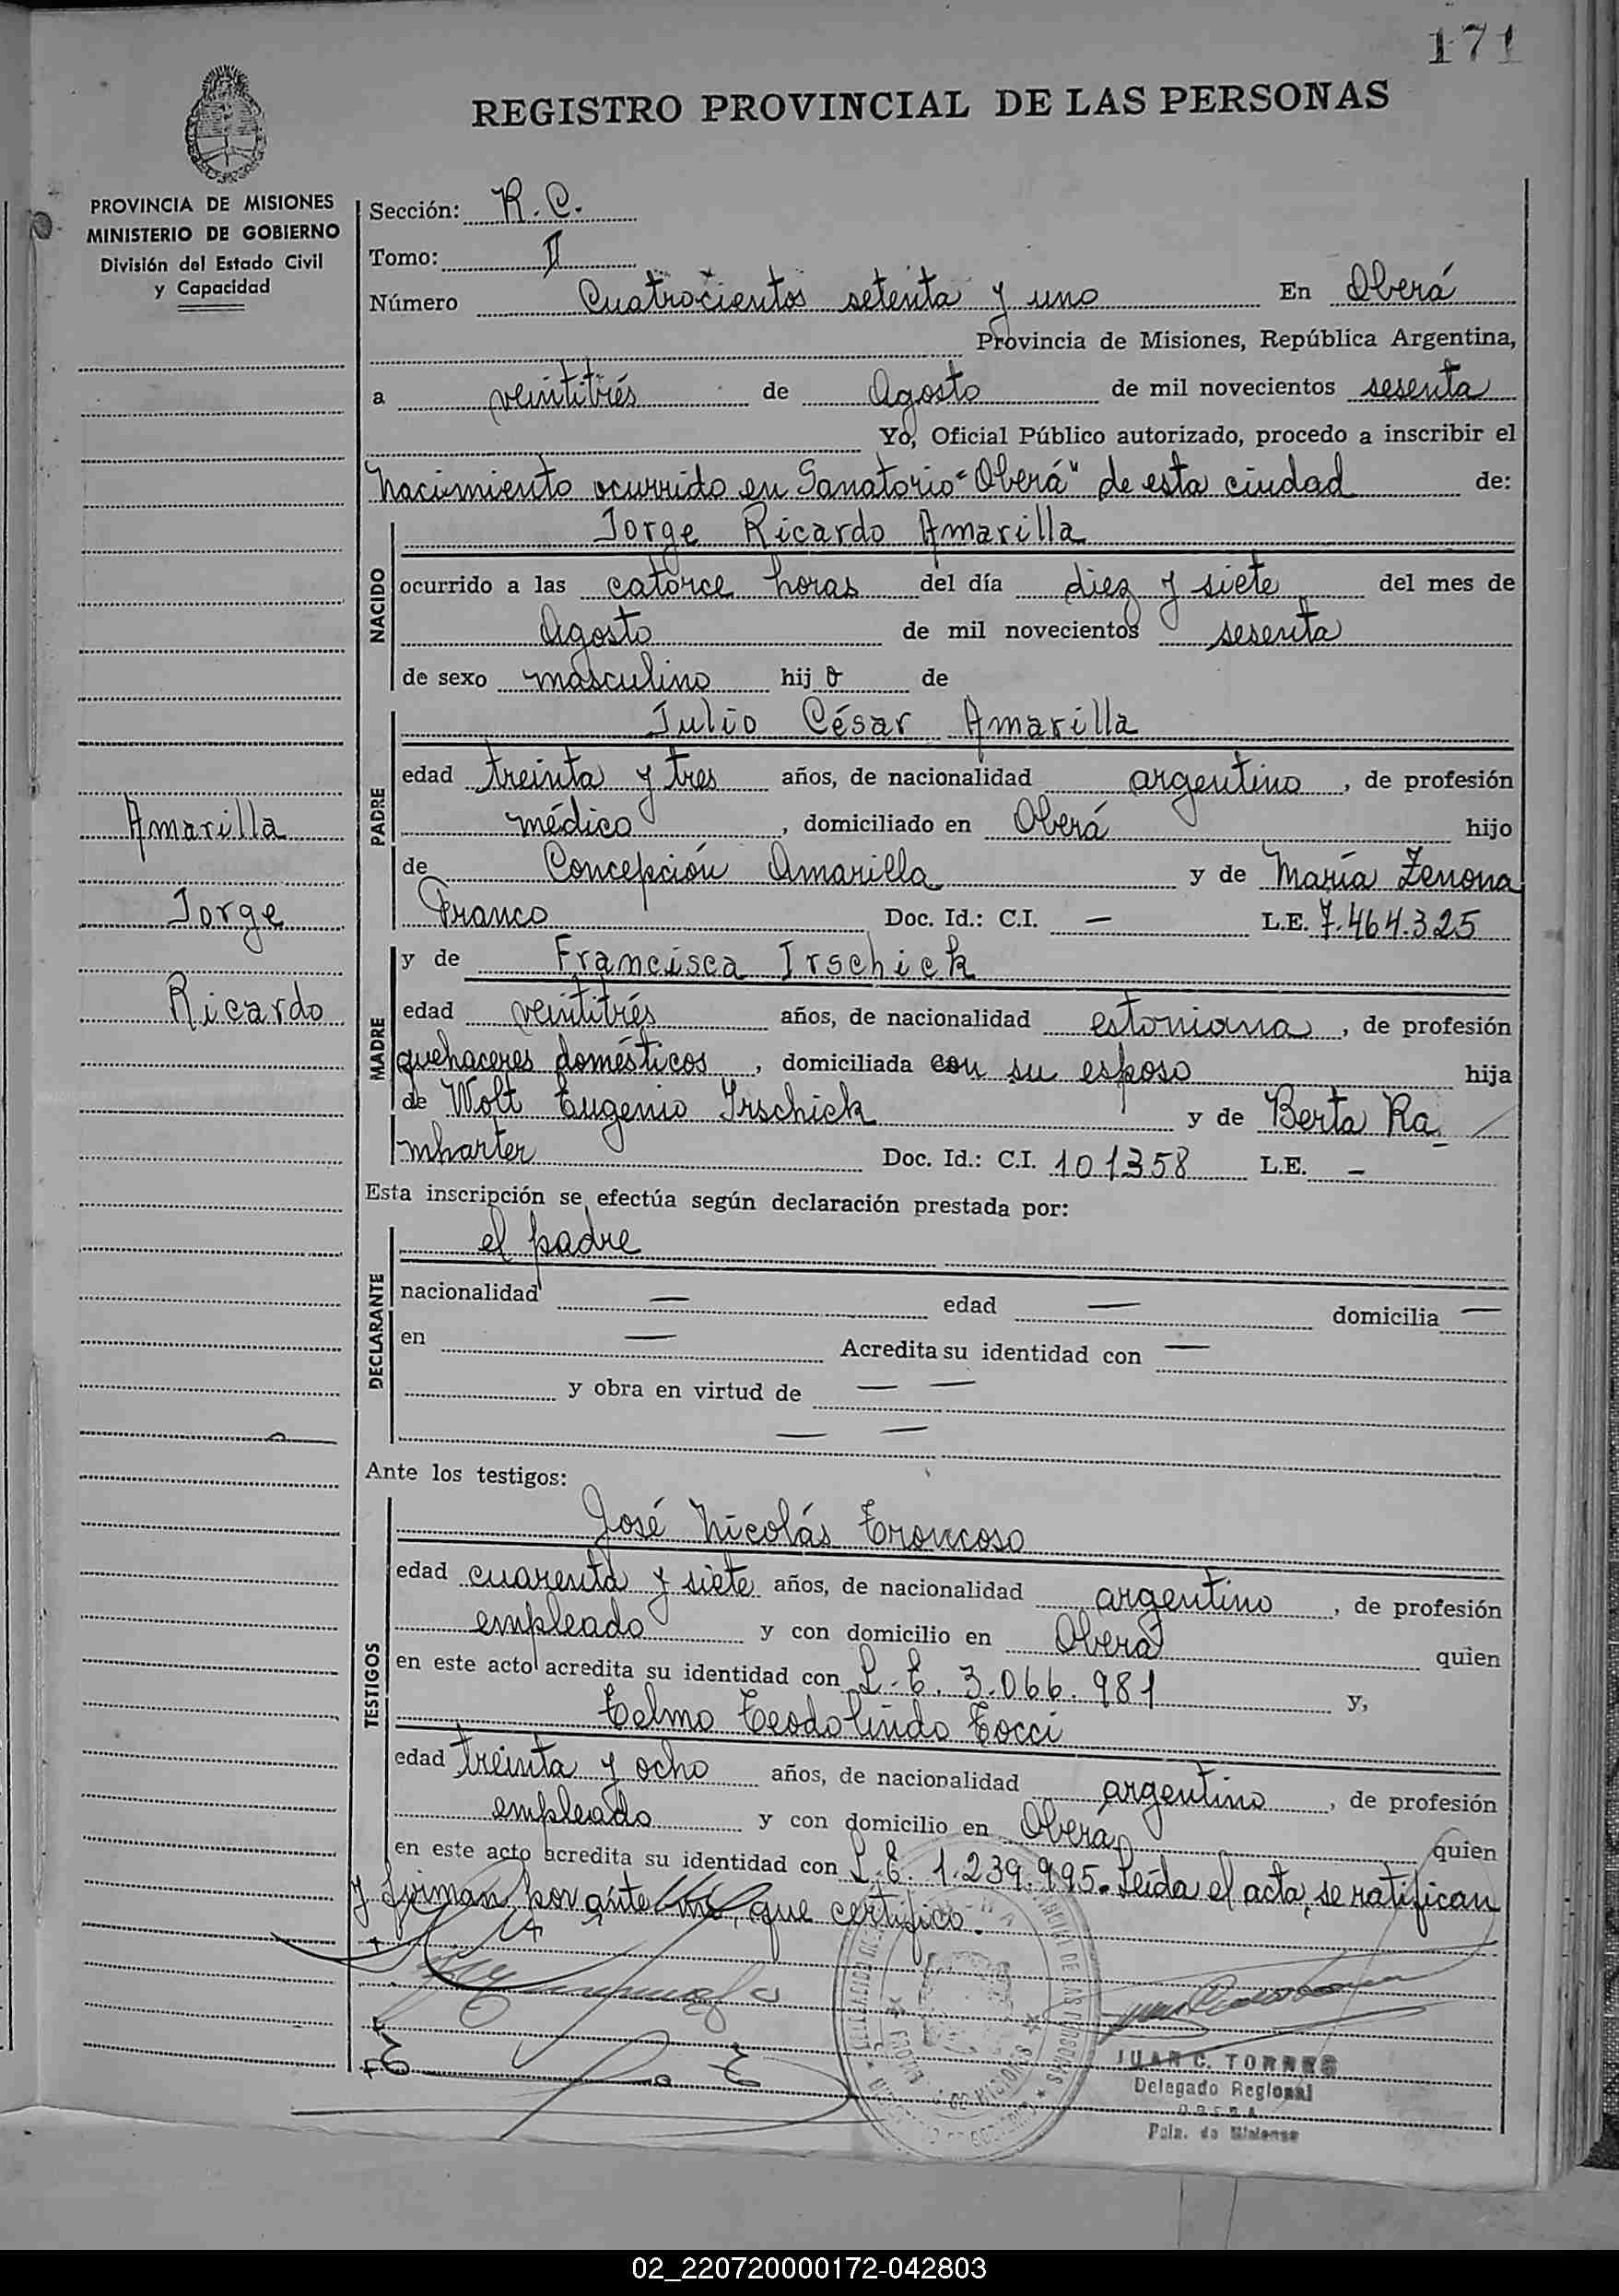 171
REGISTRO PROVINCIAL DE LAS PERSONAS
PROVINCIA DE MISIONES
MINISTERIO DE GOBIERNO
División del Estado Civil
y Capacidad
Amarilla
Jorge
Ricardo
Sección: R. C.
Tomo: II
Número Cuatrocientos setenta y uno En Oberá
Provincia de Misiones, República Argentina,
a veintitrés de Agosto de mil novecientos sesenta
Yo, Oficial Público autorizado, procedo a inscribir el
nacimiento ocurrido en Sanatorio "Oberá" de esta ciudad de:
NACIDO
Jorge Ricardo Amarilla
ocurrido a las catorce horas del día diez y siete del mes de
Agosto de mil novecientos sesenta
de sexo masculino hijo de
PADRE
Julio César Amarilla
edad treinta y tres años, de nacionalidad argentino, de profesión
médico, domiciliado en Oberá hijo
de Concepción Amarilla y de María Zenona
Franco Doc. Id.: C.I. — L.E. 7.464.325
MADRE
y de Francisca Irschick
edad veintitrés años, de nacionalidad estoniana, de profesión
quehaceres domésticos, domiciliada con su esposo hija
de Wolt Eugenio Irschick y de Berta Ra-
mharter Doc. Id.: C.I. 101358 L.E. —
Esta inscripción se efectúa según declaración prestada por:
DECLARANTE
el padre
nacionalidad — edad — domicilia —
en — Acredita su identidad con —
y obra en virtud de — —
— —
Ante los testigos:
TESTIGOS
José Nicolás Troncoso
edad cuarenta y siete años, de nacionalidad argentino, de profesión
empleado y con domicilio en Oberá quien
en este acto acredita su identidad con L.E. 3.066.981 y,
Telmo Teodolindo Tocci
edad treinta y ocho años, de nacionalidad argentino, de profesión
empleado y con domicilio en Oberá quien
en este acto acredita su identidad con L.E. 1.239.995. Leída el acta, se ratifican
y firman por ante mí, que certifico.
JUAN C. TORRES
Delegado Regional
OBERA
Pcia. de Misiones
02_220720000172-042803